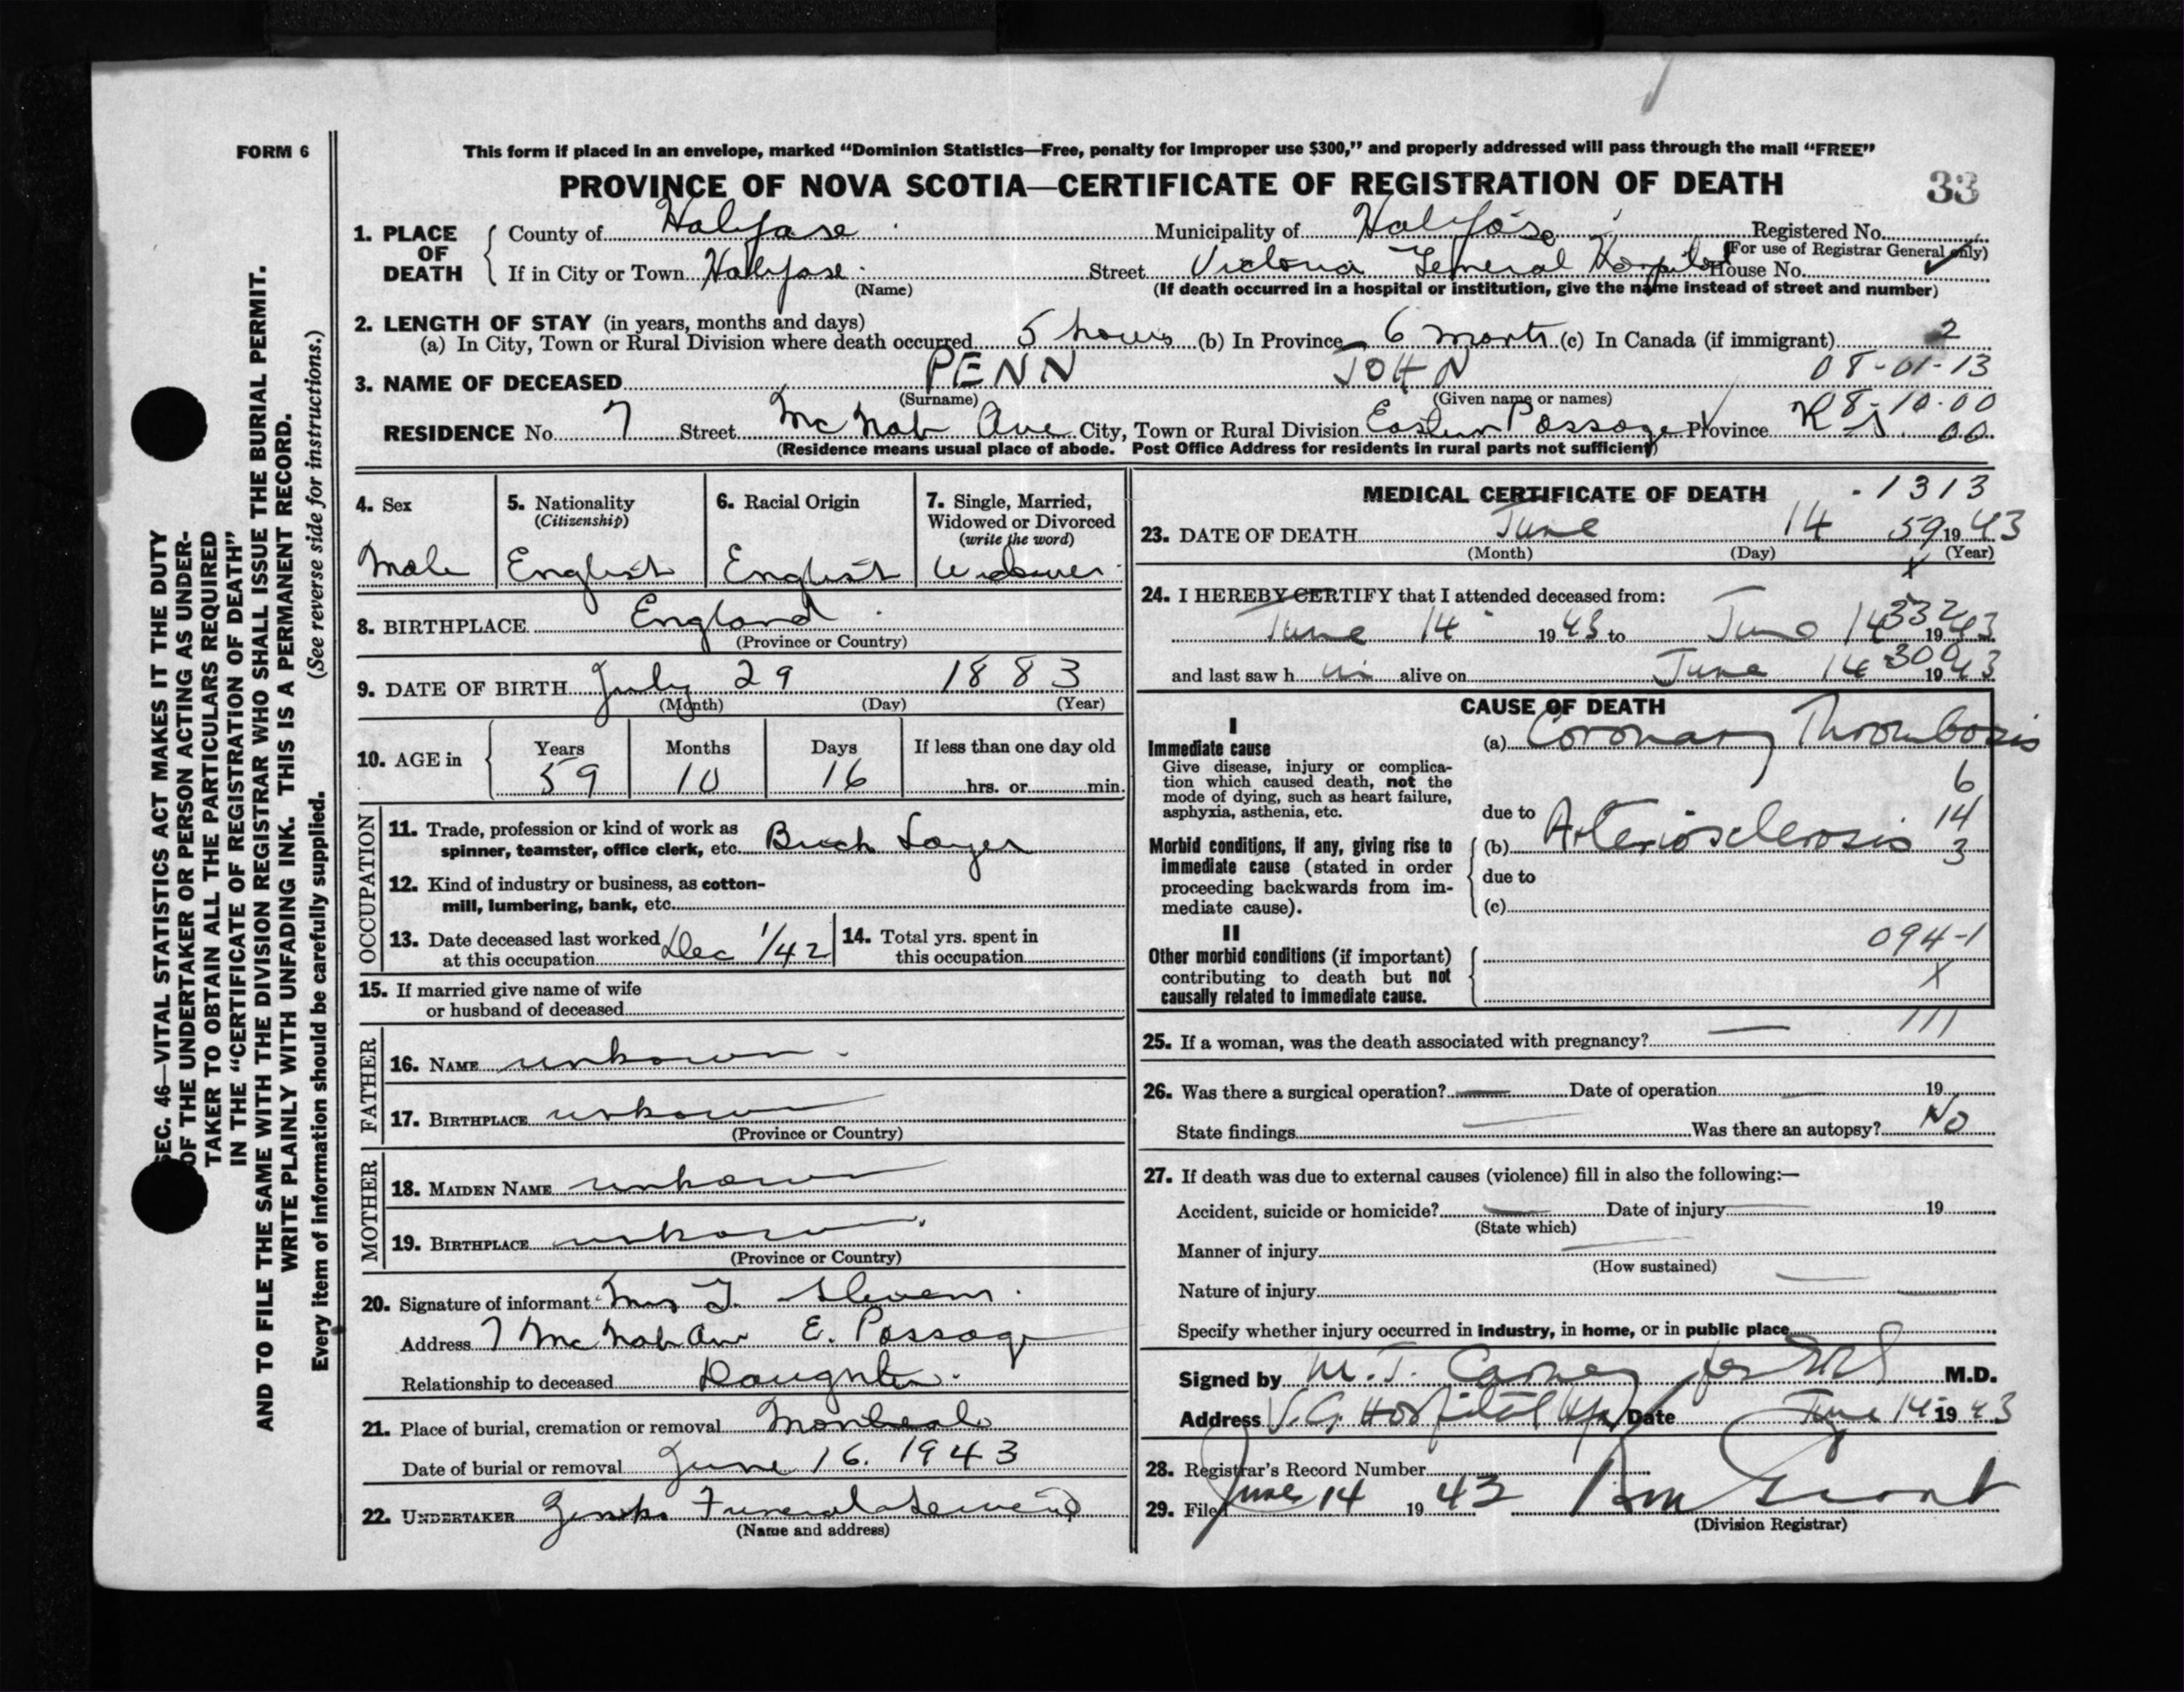 FORM 6
This form if placed in an envelope, marked “Dominion Statistics—Free, penalty for improper use $300,” and properly addressed will pass through the mail “FREE”
PROVINCE OF NOVA SCOTIA—CERTIFICATE OF REGISTRATION OF DEATH
33
1. PLACE OF DEATH
County of Halifax Municipality of Halifax Registered No.
(For use of Registrar General only)
If in City or Town Halifax Street Victoria General Hospital House No.
(Name) (If death occurred in a hospital or institution, give the name instead of street and number)
2. LENGTH OF STAY (in years, months and days)
(a) In City, Town or Rural Division where death occurred 5 hours (b) In Province 6 months (c) In Canada (if immigrant) 2
08-01-13
3. NAME OF DECEASED PENN JOHN
(Surname) (Given name or names)
8-10-00
RESIDENCE No. 7 Street McNab Ave City, Town or Rural Division Eastern Passage Province 00
(Residence means usual place of abode. Post Office Address for residents in rural parts not sufficient)
4. Sex
Male
5. Nationality
(Citizenship)
English
6. Racial Origin
English
7. Single, Married,
Widowed or Divorced
(write the word)
Widower
8. BIRTHPLACE England
(Province or Country)
9. DATE OF BIRTH July 29 1883
(Month) (Day) (Year)
10. AGE in
Years Months Days If less than one day old
59 10 16 hrs. or min.
OCCUPATION
11. Trade, profession or kind of work as
spinner, teamster, office clerk, etc. Brick Layer
12. Kind of industry or business, as cotton-
mill, lumbering, bank, etc.
13. Date deceased last worked
at this occupation Dec 1/42
14. Total yrs. spent in
this occupation
15. If married give name of wife
or husband of deceased
FATHER
16. NAME unknown
17. BIRTHPLACE unknown
(Province or Country)
MOTHER
18. MAIDEN NAME unknown
19. BIRTHPLACE unknown
(Province or Country)
20. Signature of informant Mrs J. Stevens
Address 7 McNab Ave E. Passage
Relationship to deceased Daughter
21. Place of burial, cremation or removal Montreal
Date of burial or removal June 16. 1943
22. UNDERTAKER Funeral Service
(Name and address)
MEDICAL CERTIFICATE OF DEATH
1313
23. DATE OF DEATH June 14 59 1943
(Month) (Day) (Year)
x
24. I HEREBY CERTIFY that I attended deceased from:
332
June 14 1943 to June 14 1943
300
and last saw h im alive on June 14 1943
CAUSE OF DEATH
I
Immediate cause
Give disease, injury or complica-
tion which caused death, not the
mode of dying, such as heart failure,
asphyxia, asthenia, etc.
(a) Coronary Thrombosis
6
14
3
due to
Morbid conditions, if any, giving rise to
immediate cause (stated in order
proceeding backwards from im-
mediate cause).
(b) Arteriosclerosis
due to
(c)
II
Other morbid conditions (if important)
contributing to death but not
causally related to immediate cause.
094-1
X
111
25. If a woman, was the death associated with pregnancy? —
26. Was there a surgical operation? — Date of operation — 19
State findings — Was there an autopsy? No
27. If death was due to external causes (violence) fill in also the following:—
Accident, suicide or homicide? — Date of injury — 19
(State which)
Manner of injury —
(How sustained)
Nature of injury —
Specify whether injury occurred in industry, in home, or in public place —
Signed by M. J. Carney for M.D.
Address V.G. Hospital Hfx Date June 14 1943
28. Registrar's Record Number
29. Filed June 14 1943
(Division Registrar)
SEC. 46—VITAL STATISTICS ACT MAKES IT THE DUTY
OF THE UNDERTAKER OR PERSON ACTING AS UNDER-
TAKER TO OBTAIN ALL THE PARTICULARS REQUIRED
IN THE “CERTIFICATE OF REGISTRATION OF DEATH”
AND TO FILE THE SAME WITH THE DIVISION REGISTRAR WHO SHALL ISSUE THE BURIAL PERMIT.
WRITE PLAINLY WITH UNFADING INK. THIS IS A PERMANENT RECORD.
Every item of information should be carefully supplied. (See reverse side for instructions.)